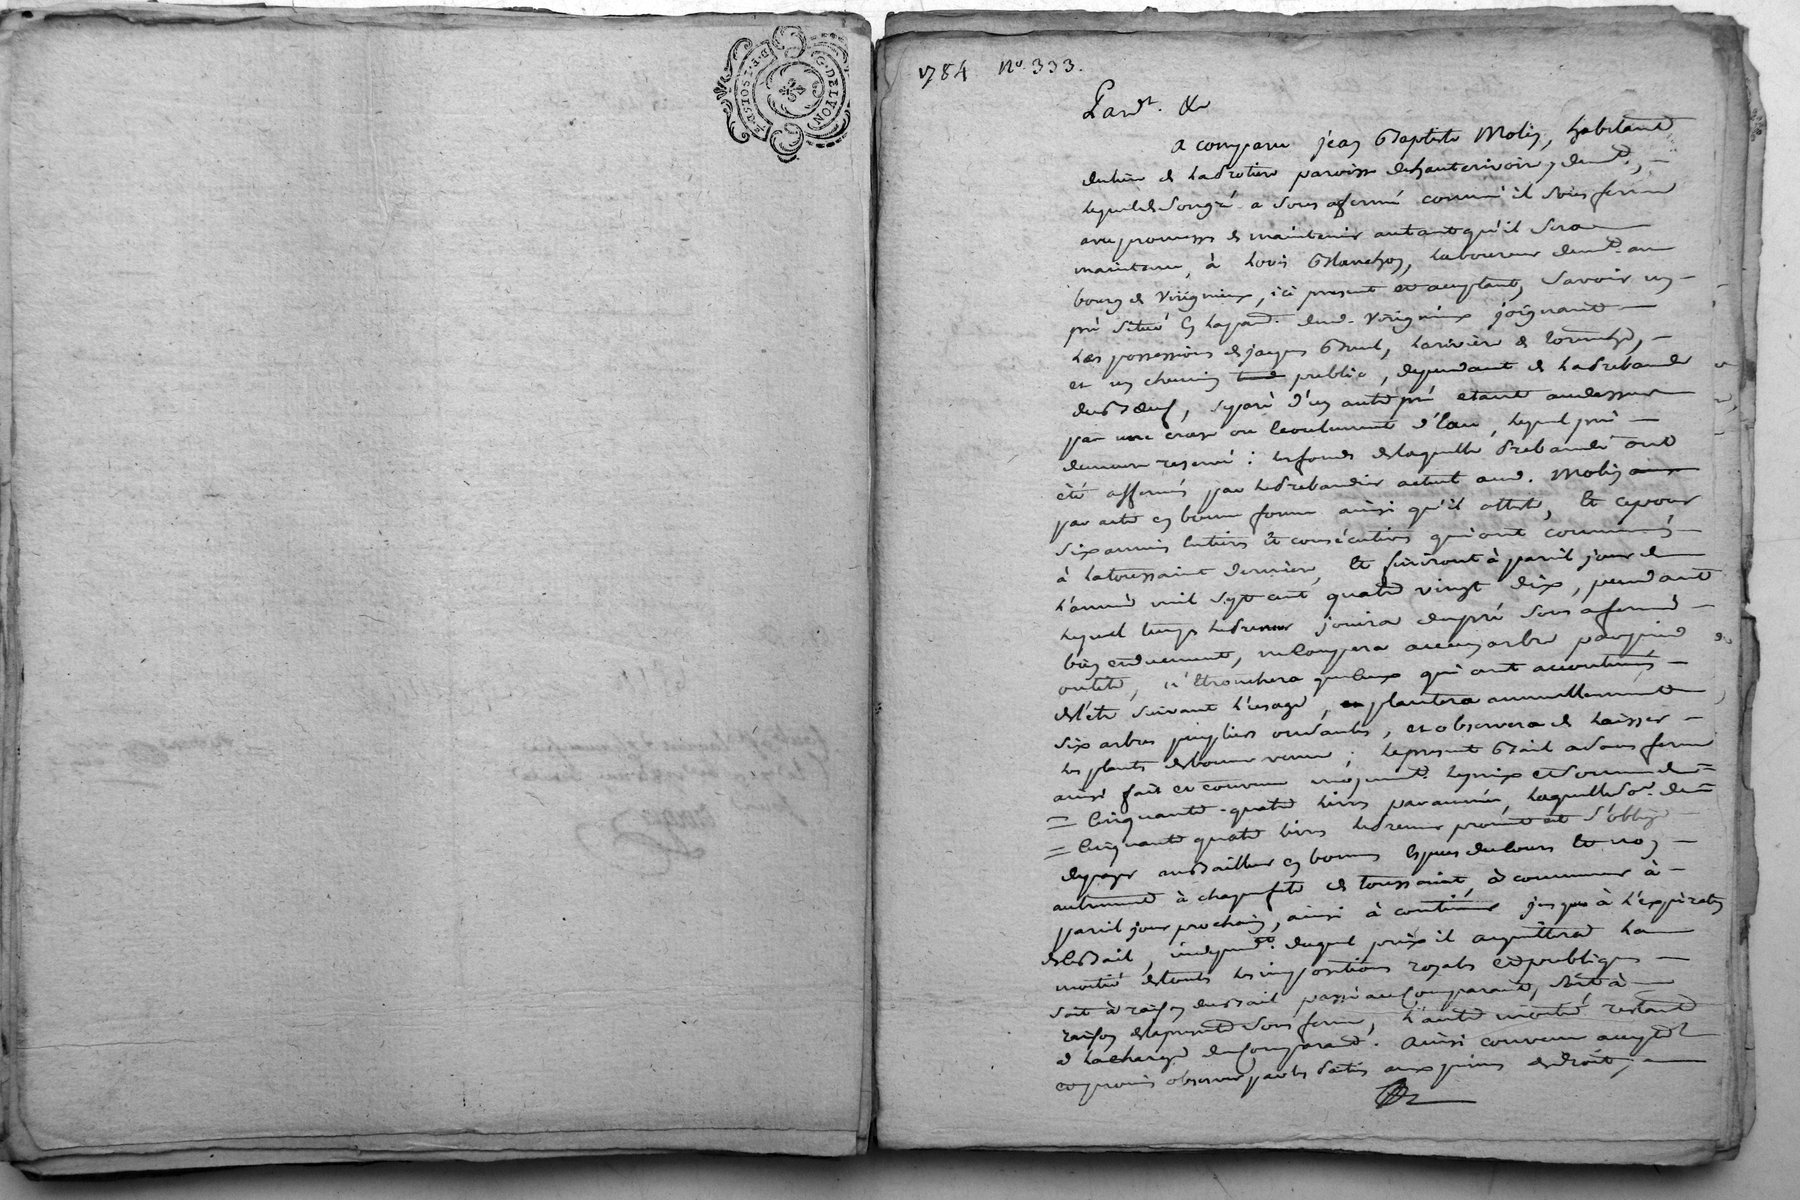 G. DELYON
1784 No. 333.
Pardt. &c
a comparu jean Baptiste Molin, habitant
du lieu de la drotiere paroisse de hauterivoire, demt., —
lequel de son gré a sous afermé comme il sous ferme
avec promesse de maintenir autant qu'il sera —
maintenu, à Louis Blanchon, laboureur demt. au
bourg de Virigneux, ici present et acceptant, savoir un —
pré situé en la par. dud. Virigneux joignant —
les possessions de jacques Brul, la riviere de toranche, —
et un chemin public, dependant de la prebande
du Boeuf, separé d'un autre pré etant audessus
par une craze ou ecoulement d'eau, lequel pré —
demeure reservé : les fonds de laquelle prebande ont
été affermés par le prebandier actuel aud. Molin
par acte en bonne forme ainsi qu'il atteste, et ce pour
six années entieres et consécutives qui ont commencé —
à la toussaint derniere, et finiront à pareil jour de
l'année mil sept cent quatre vingt dix, pendant
lequel temps le preneur jouira du pré sous afermé —
bien et duement, ne coupera aucun arbre par pied
ou tête, n'etronchera que ceux qui ont accoutumé —
de l'etre suivant l'usage, plantera annuellement
six arbres peupliers ou saules, et observera de laisser —
les plants de bonne venue ; le present Bail a sous ferme
ainsi fait et convenu moyennt. le prix et somme de =
= Cinquante-quatre livres par année, laquelle so. de =
= cinquante quatre livres le preneur promet et s'oblige —
de payer au Bailleur en bonnes especes de cours et non —
autrement à chaque fete de toussaint, à commencer à —
pareil jour prochain, ainsi à continuer jusques à l'expiraton
de ce Bail, independt. duquel prix il acquittera la —
moitié de toutes les impositions royales et publiques —
soit à raison du Bail passé au comparant, soit à —
raison de la presente sous ferme, l'autre moitié restant
a la charge du comparant. Ainsi convenu accepté
et promis observer par les parties aux peines de droit, —